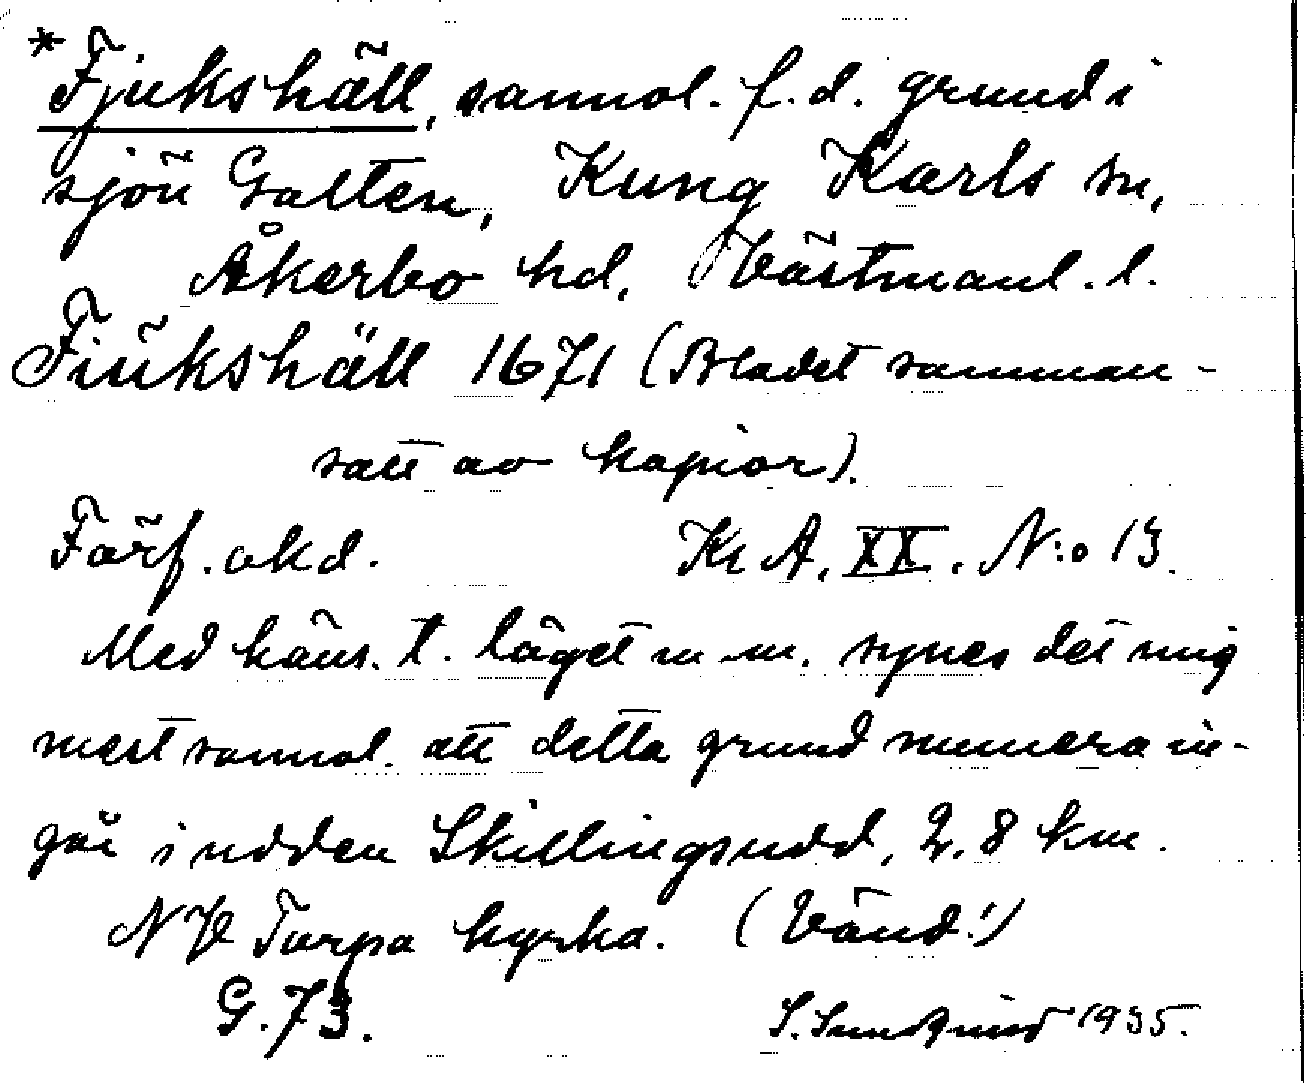 *Fjukshäll, sannol. f.d. grund i
sjön Galten, Kung Karls sn,
Åkerbo hd, Västmanl. l.
Fiukshäll 1671 (Bladet samman-
satt av kopior).
Förf. okd. Kr A. XX. N:o 13.
Med häns. t. läget m m. synes det mig
mest sannol. att detta grund numera in-
går i udden Skillingsudd, 2,8 km.
NV Torpa kyrka. (Vänd!)
G. 73. 1935.